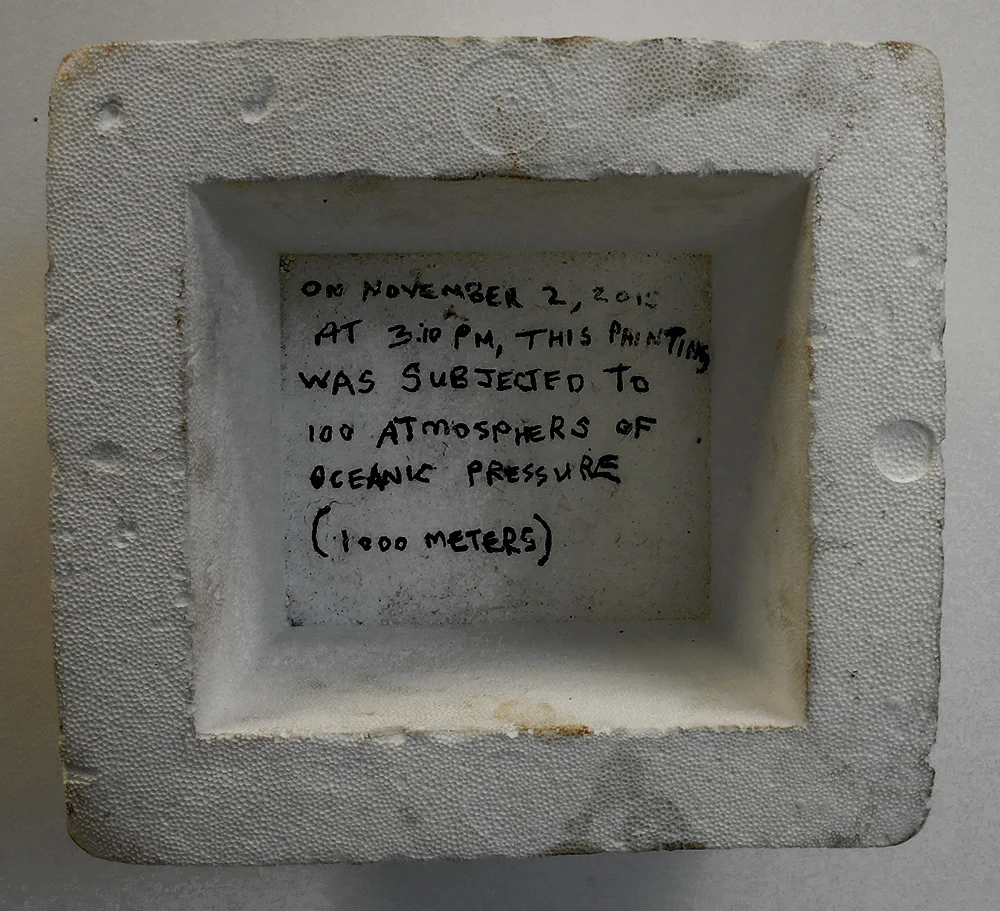 ON NOVEMBER 2, 2015
AT 3:10 PM, THIS PAINTING
WAS SUBJECTED TO
100 ATMOSPHERS OF
OCEANIC PRESSURE
(1000 METERS)